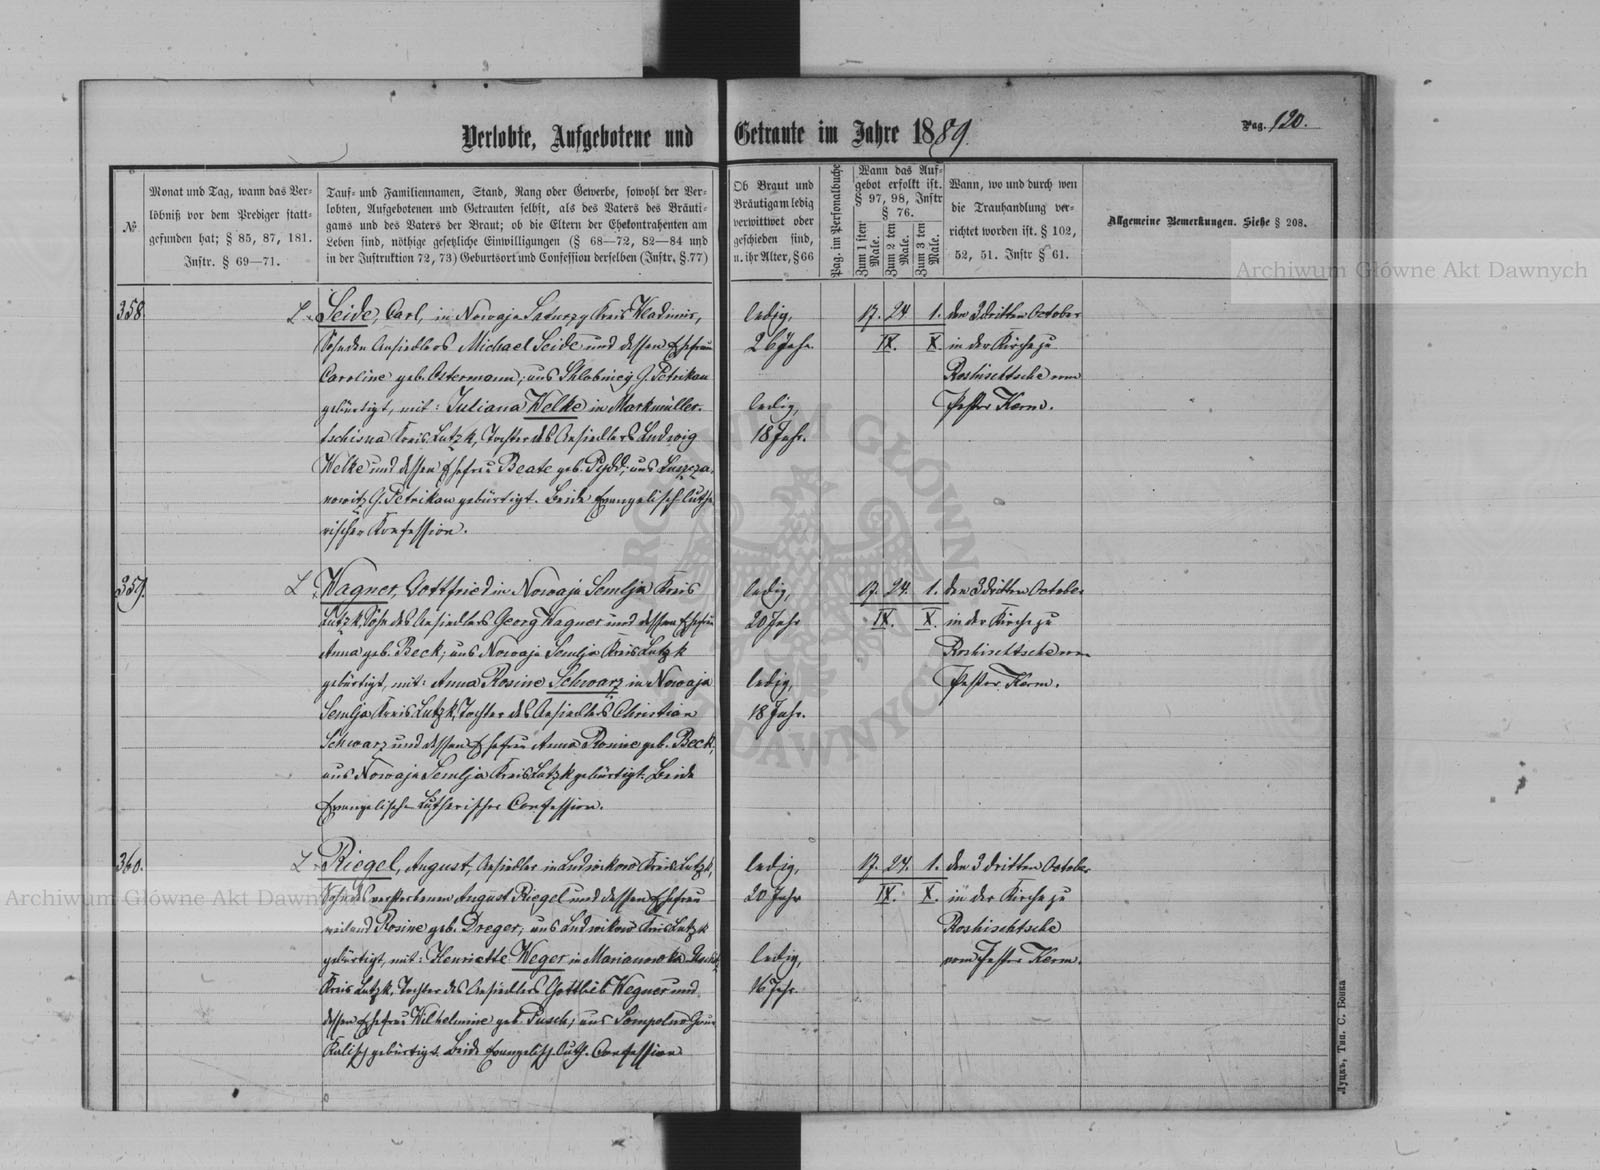 Verlobte, Aufgebotene und Getraute im Jahre 1889.
Pag. 120.
№
Monat und Tag, wann das Ver-
löbniß vor dem Prediger statt-
gefunden hat; § 85, 87, 181.
Instr. § 69—71.
Tauf- und Familiennamen, Stand, Rang oder Gewerbe, sowohl der Ver-
lobten, Aufgebotenen und Getrauten selbst, als des Vaters des Bräuti-
gams und des Vaters der Braut; ob die Eltern der Ehekontrahenten am
Leben sind, nöthige gesetzliche Einwilligungen (§ 68—72, 82—84 und
in der Instruktion 72, 73) Geburtsort und Confession derselben (Instr. §.77)
Ob Braut und
Bräutigam ledig
verwittwet oder
geschieden sind,
u. ihr Alter, § 66
Pag. im Personalbuche
Wann das Auf-
gebot erfolkt ist.
§ 97, 98, Instr
§ 76.
Zum 1 sten Male.
Zum 2 ten Male.
Zum 3 ten Male.
Wann, wo und durch wen
die Trauhandlung ver-
richtet worden ist. § 102,
52, 51. Instr § 61.
Allgemeine Bemerkungen. Siehe § 208.
358.
Seide, Carl, in Nowaja Kreis Wladimir,
Sohn des Ansiedlers Michael Seide und dessen Ehefrau
Caroline geb. Ostermann; aus G. Petrikau
gebürtigt, mit: Juliana Welke in Markmüller-
tschisna Kreis Lutzk, Tochter des Ansiedlers Ludwig
Welke und dessen Ehefrau Beate geb. aus
G. Petrikau gebürtigt. Beide Evangelisch-Luthe-
rischer Konfession.
ledig,
26 Jahr.
ledig,
18 Jahr.
17. 24. 1.
IX. X.
den 3 dritten October
in der Kirche zu
Roshischtsche vom
Pastor Kerm.
359.
Wagner, Gottfried in Nowaja Semlja Kreis
Lutzk, Sohn des Ansiedlers Georg Wagner und dessen Ehefrau
Anna geb. Beck; aus Nowaja Semlja Kreis Lutzk
gebürtigt, mit: Anna Rosine Schwarz in Nowaja
Semlja Kreis Lutzk, Tochter des Ansiedlers Christian
Schwarz und dessen Ehefrau Anna Rosine geb. Beck,
aus Nowaja Semlja Kreis Lutzk gebürtigt. Beide
Evangelisch-Lutherischer Confession.
ledig,
20 Jahr
ledig,
18 Jahr.
17. 24. 1.
IX. X.
den 3 dritten October
in der Kirche zu
Roshischtsche vom
Pastor Kerm.
360.
Riegel, August, Ansiedler in Ludwikow Kreis Lutzk,
Sohn des verstorbenen August Riegel und dessen Ehefrau
weiland Rosine geb. Dreger; aus Ludwikow Kreis Lutzk
gebürtigt, mit: Henriette Weger in Marianowka
Kreis Lutzk, Tochter des Ansiedlers Gottlieb Wegner und
dessen Ehefrau Wilhelmine geb. Pusch; aus Sompolno Gouv.
Kalisch gebürtigt. Beide Evangelisch-Luth. Confession.
ledig,
20 Jahr
ledig,
16 Jahr.
17. 24. 1.
IX. X.
den 3 dritten October
in der Kirche zu
Roshischtsche
vom Pastor Kerm.
Луцкъ, Тип. С. Бонка
Archiwum Główne Akt Dawnych
Archiwum Główne Akt Dawnych
ARCHIWUM GŁÓWNE AKT DAWNYCH